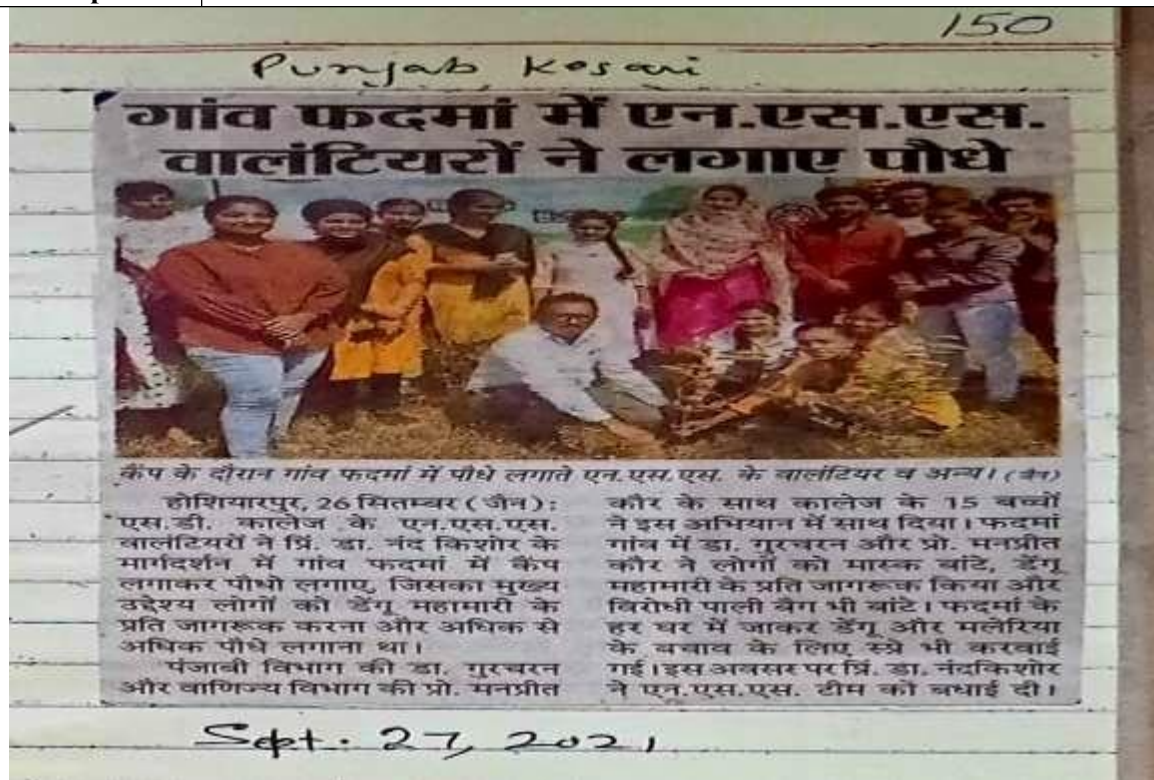 150
Punjab Kesari
गांव फदमां में एन.एस.एस.
वालंटियरों ने लगाए पौधे
कैंप के दौरान गांव फदमां में पौधे लगाते एन.एस.एस. के वालंटियर व अन्य। (जैन)
होशियारपुर, 26 सितम्बर (जैन):
एस.डी. कालेज के एन.एस.एस.
वालंटियरों ने प्रिं. डा. नंद किशोर के
मार्गदर्शन में गांव फदमां में कैंप
लगाकर पौधो लगाए, जिसका मुख्य
उद्देश्य लोगों को डेंगू महामारी के
प्रति जागरूक करना और अधिक से
अधिक पौधे लगाना था।
पंजाबी विभाग की डा. गुरचरन
और वाणिज्य विभाग की प्रो. मनप्रीत
कौर के साथ कालेज के 15 बच्चों
ने इस अभियान में साथ दिया। फदमां
गांव में डा. गुरचरन और प्रो. मनप्रीत
कौर ने लोगों को मास्क बांटे, डेंगू
महामारी के प्रति जागरूक किया और
विरोधी पाली बैग भी बांटे। फदमां के
हर घर में जाकर डेंगू और मलेरिया
के बचाव के लिए स्प्रे भी करवाई
गई। इस अवसर पर प्रिं. डा. नंदकिशोर
ने एन.एस.एस. टीम को बधाई दी।
Sept. 27, 2021